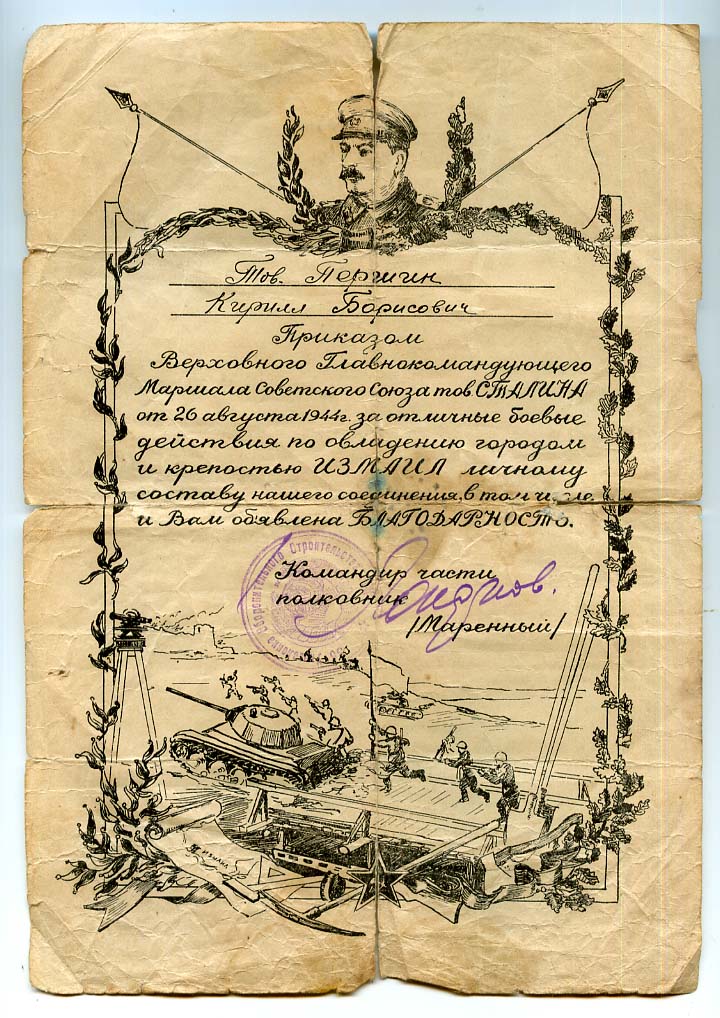 Тов. Першин
Кирилл Борисович
Приказом
Верховного Главнокомандующего
Маршала Советского Союза тов. СТАЛИНА
от 26 августа 1944 г. за отличные боевые
действия по овладению городом
и крепостью ИЗМАИЛ личному
составу нашего соединения, в том числе
и Вам обявлена БЛАГОДАРНОСТЬ.
Оборонительного Строительства
Командир части
полковник
/Маренный/